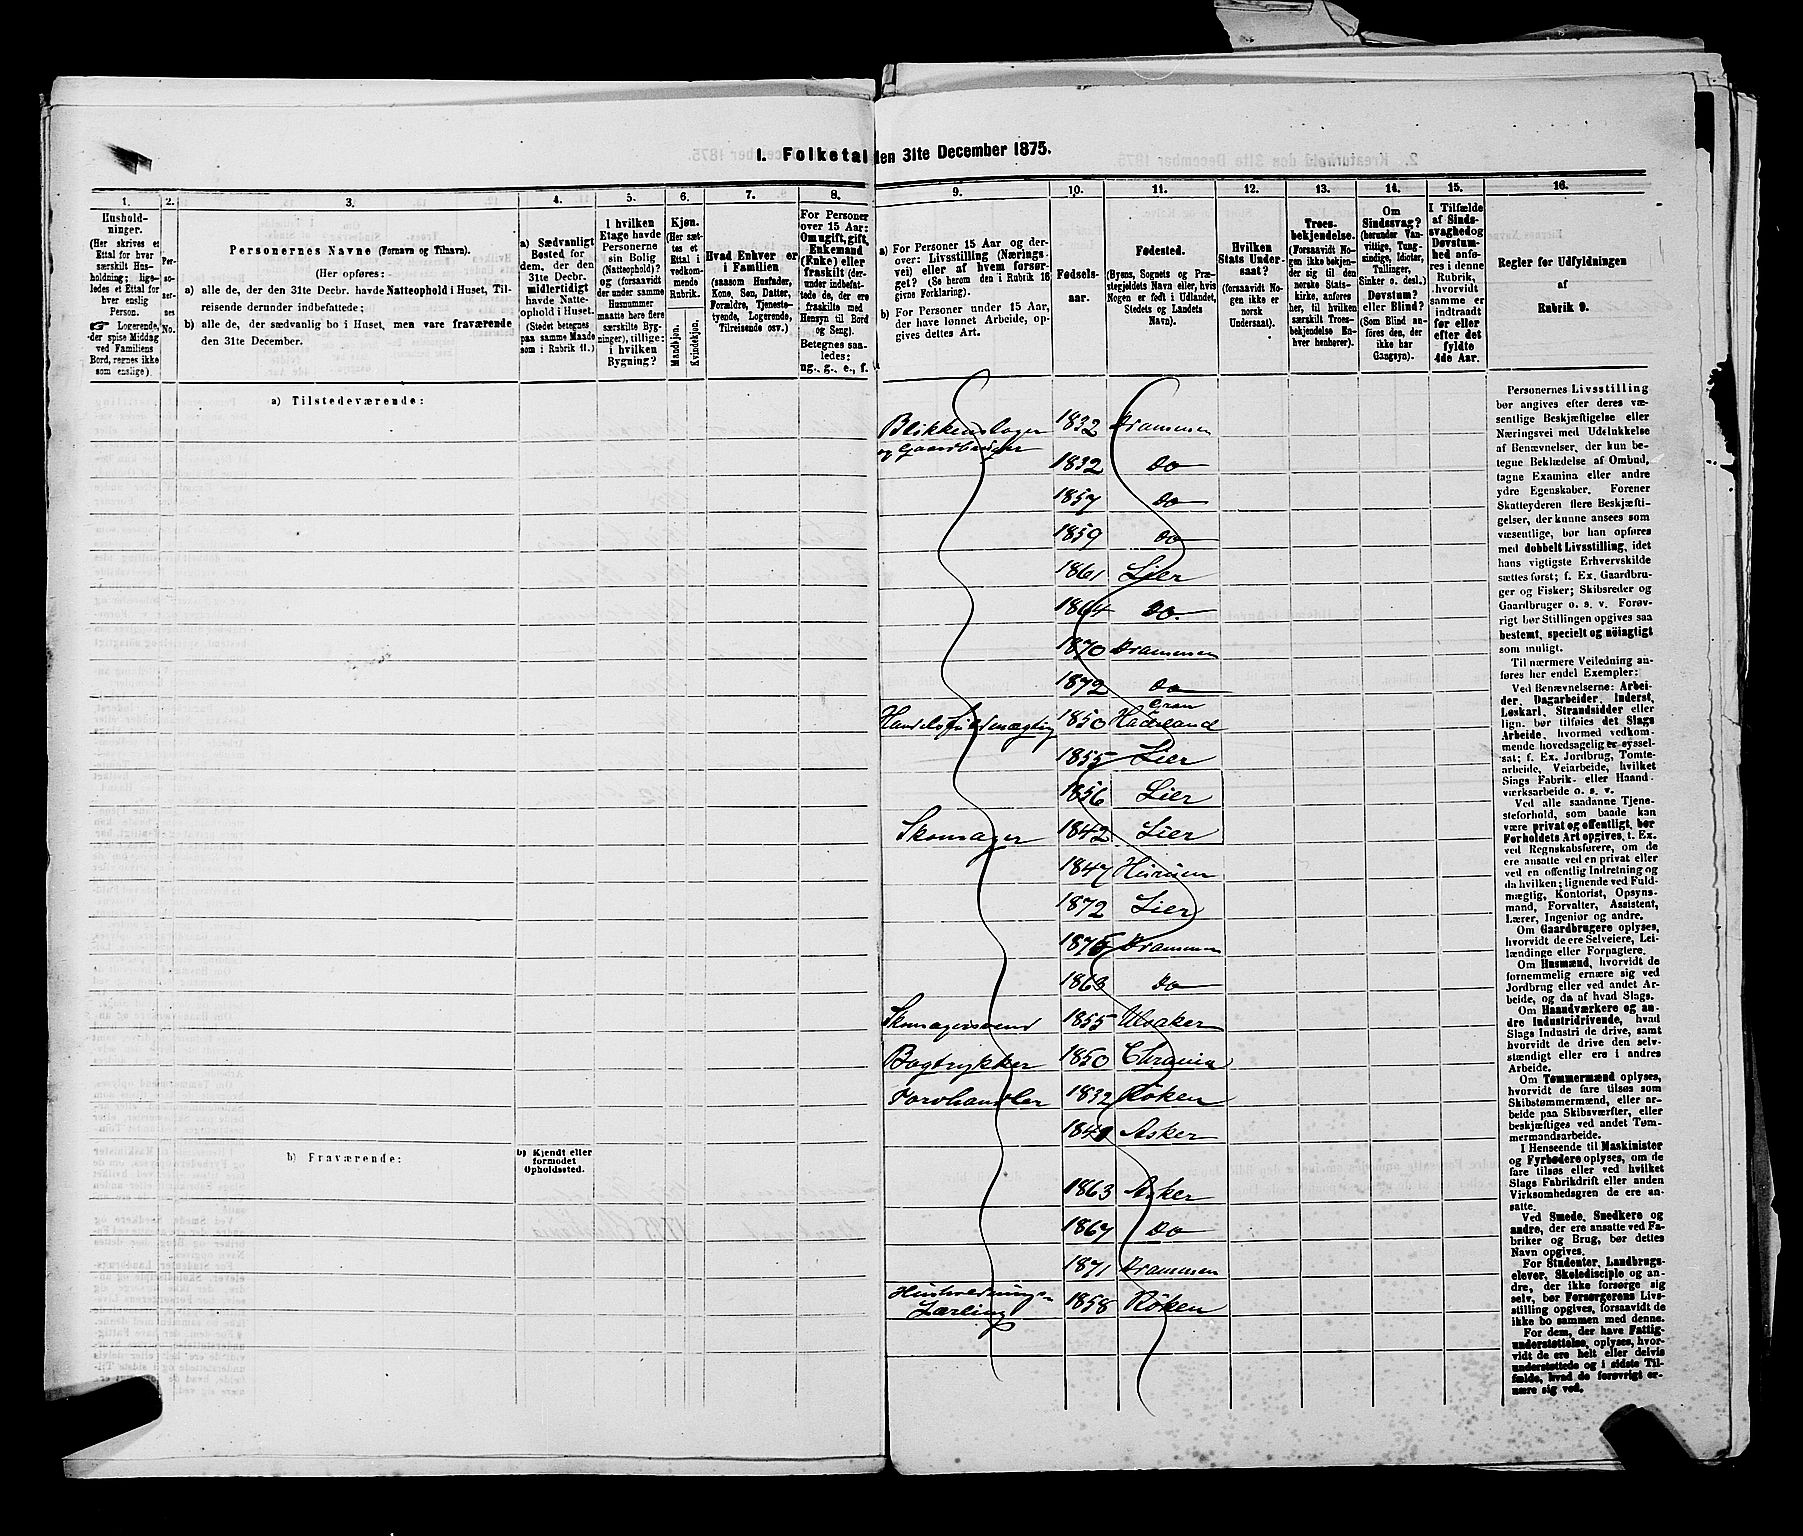 1. Folketal den 31te December 1875.
1. 2. 3. 4. 5. 6. 7. 8. 9. 10. 11. 12. 13. 14. 15. 16.
Hushold-
ninger.
(Her skrives et
Ettal for hver
særskilt Hus-
holdning; lige-
ledes et Ettal for
hver enslig
Person.
☞ Logerende,
der spise Middag
ved Familiens
Bord, regnes ikke
som enslige).
Per-
so-
ner-
nes
No.
Personernes Navne (Fornavn og Tilnavn).
(Her opføres:
a) alle de, der den 31te Decbr. havde Natteophold i Huset, Til-
reisende derunder indbefattede;
b) alle de, der sædvanlig bo i Huset, men vare fraværende
den 31te December.
a) Sædvanligt
Bosted for
dem, der den
31te Decbr.
midlertidigt
havde Natte-
ophold i Huset.
(Stedet betegnes
paa samme Maade
som i Rubrik 11.)
I hvilken
Etage havde
Personerne
sin Bolig
(Natteophold)?
og (forsaavidt
der under samme
Husnummer
maatte høre flere
særskilte Byg-
ninger), tillige:
i hvilken
Bygning?
Kjøn.
(Her sæt-
tes et
Ettal i
vedkom-
mende
Rubrik.
Mandkjøn.
Kvindekjøn.
Hvad Enhver er
i Familien
(saasom Husfader,
Kone, Søn, Datter,
Forældre, Tjeneste-
tyende, Logerende,
Tilreisende osv.)
For Personer
over 15 Aar:
Om ugift, gift,
Enkemand
(Enke) eller
fraskilt (der-
under indbefat-
tede de, der ere
fraskilte med
Hensyn til Bord
og Seng).
Betegnes saa-
ledes:
ug., g., e., f.
a) For Personer 15 Aar og der-
over: Livsstilling (Nærings-
vei) eller af hvem forsør-
get? (Se herom den i Rubrik 16
givne Forklaring).
b) For Personer under 15 Aar,
der have lønnet Arbeide, op-
gives dettes Art.
Fødsels-
aar.
Fødested.
(Byens, Sognets og Præ-
stegjeldets Navn eller, hvis
Nogen er født i Udlandet,
Stedets og Landets
Navn).
Hvilken
Stats Under-
saat?
(forsaavidt No-
gen ikke er
norsk
Undersaat).
Troes-
bekjendelse.
(Forsaavidt No-
gen ikke bekjen-
der sig til den
norske Stats-
kirke, anføres
her, til hvilken
særskilt Troes-
bekjendelse En-
hver henhører).
Om
Sindssvag?
(herunder Van-
vittige, Tung-
sindige, Idioter,
Tullinger,
Sinker o. desl.)
Døvstum?
eller Blind?
(Som Blind an-
føres den, der
ikke har
Gangsyn).
I Tilfælde
af Sinds-
svaghed og
Døvstum-
hed anfø-
res i denne
Rubrik,
hvorvidt
samme er
indtraadt
før eller
efter det
fyldte
4de Aar.
Regler for Udfyldningen
af
Rubrik 9.
a) Tilstedeværende:
Blikkenslager 1832 Drammen
og Gaardbruger
1832 do
1857 do
1859 do
1861 Lier
1864 do.
1870 Drammen
1872 do
Gran
Handelsfuldmægtig 1850 Hadeland
1855 Lier
1856 Lier
Skomager 1842 Lier
1847 Hurum
1872 Lier
1875 Drammen
1863 do
Skomagersvend 1855 Ulsaker
Bogtrykker 1850 Chrania
Torvhandler 1832 Røken
1841 Asker
b) Fraværende:
b) Kjendt eller
formodet
Opholdssted.
1863 Asker
1867 do
1871 Drammen
Husholdnings- 1858 Røken
Lærling
Personernes Livsstilling
bør angives efter deres væ-
sentlige Beskjæftigelse eller
Næringsvei med Udelukkelse
af Benævnelser, der kun be-
tegne Beklædelse af Ombud,
tagne Examina eller andre
ydre Egenskaber. Forener
Skatteyderen flere Beskjæfti-
gelser, der kunne ansees som
væsentlige, bør han opføres
med dobbelt Livsstilling, idet
hans vigtigste Erhvervskilde
sættes først; f. Ex. Gaardbru-
ger og Fisker; Skibsreder og
Gaardbruger o. s. v. Forøv-
rigt bør Stillingen opgives saa
bestemt, specielt og nøiagtigt
som muligt.
Til nærmere Veiledning an-
føres her endel Exempler:
Ved Benævnelserne: Arbei-
der, Dagarbeider, Inderst,
Løskarl, Strandsidder eller
lign. bør tilføies det Slags
Arbeide, hvormed vedkom-
mende hovedsagelig er syssel-
sat; f. Ex. Jordbrug, Tomte-
arbeide, Veiarbeide, hvilket
Slags Fabrik- eller Haand-
værksarbeide o. s. v.
Ved alle saadanne Tjene-
steforhold, som baade kan
være privat og offentligt, bør
Forholdets Art opgives, t. Ex.
ved Regnskabsførere, om de
ere ansatte ved en privat eller
ved en offentlig Indretning og
da hvilken; lignende ved Fuld-
mægtig, Kontorist, Opsyns-
mand, Forvalter, Assistent,
Lærer, Ingeniør og andre.
Om Gaardbrugere oplyses,
hvorvidt de ere Selveiere, Lei-
lændinge eller Forpagtere.
Om Husmænd, hvorvidt de
fornemmelig ernære sig ved
Jordbrug eller ved andet Ar-
beide, og da af hvad Slags.
Om Haandværkere og an-
dre Industridrivende, hvad
Slags Industri de drive, samt
hvorvidt de drive den selv-
stændigt eller ere i andres
Arbeide.
Om Tømmermænd oplyses,
hvorvidt de fare tilsøs som
Skibstømmermænd, eller ar-
beide paa Skibsværfter, eller
beskjæftiges ved andet Tøm-
mermandsarbeide.
I Henseende til Maskinister
og Fyrbødere oplyses, om de
fare tilsøs eller ved hvilket
Slags Fabrikdrift eller anden
Virksomhedsgren de ere an-
satte.
Ved Smede, Snedkere og
andre, der ere ansatte ved Fa-
briker og Brug, bør dettes
Navn opgives.
For Studenter, Landbrugs-
elever, Skoledisciple og an-
dre, der ikke forsørge sig
selv, bør Forsørgerens Livs-
stilling opgives, forsaavidt de
ikke bo sammen med denne.
For dem, der have Fattig-
understøttelse, oplyses, hvor-
vidt de ere helt eller delvis
understøttede og i sidste Til-
fælde, hvad de forøvrigt er-
nære sig ved.